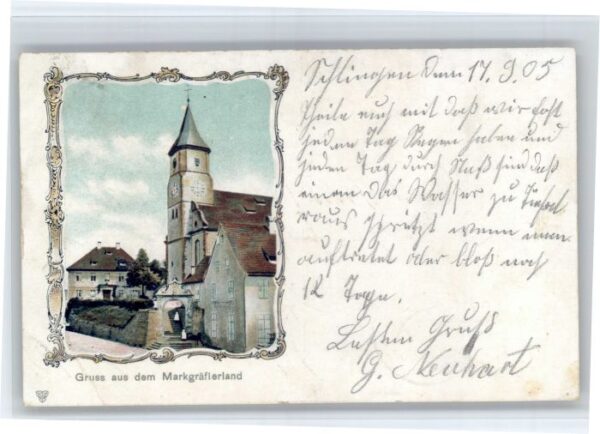 Schlingen dem 17. 9. 05
Theile euch mit daß wir fast
jeden Tag Regen haben und
jeden Tag durch Naß sind daß
einem das Wasser zu Stiefel
raus spritzt wenn man
auftretet oder bloß noch
12 Tage.
Besten Gruß
G. Neuhart
Gruss aus dem Markgräflerland